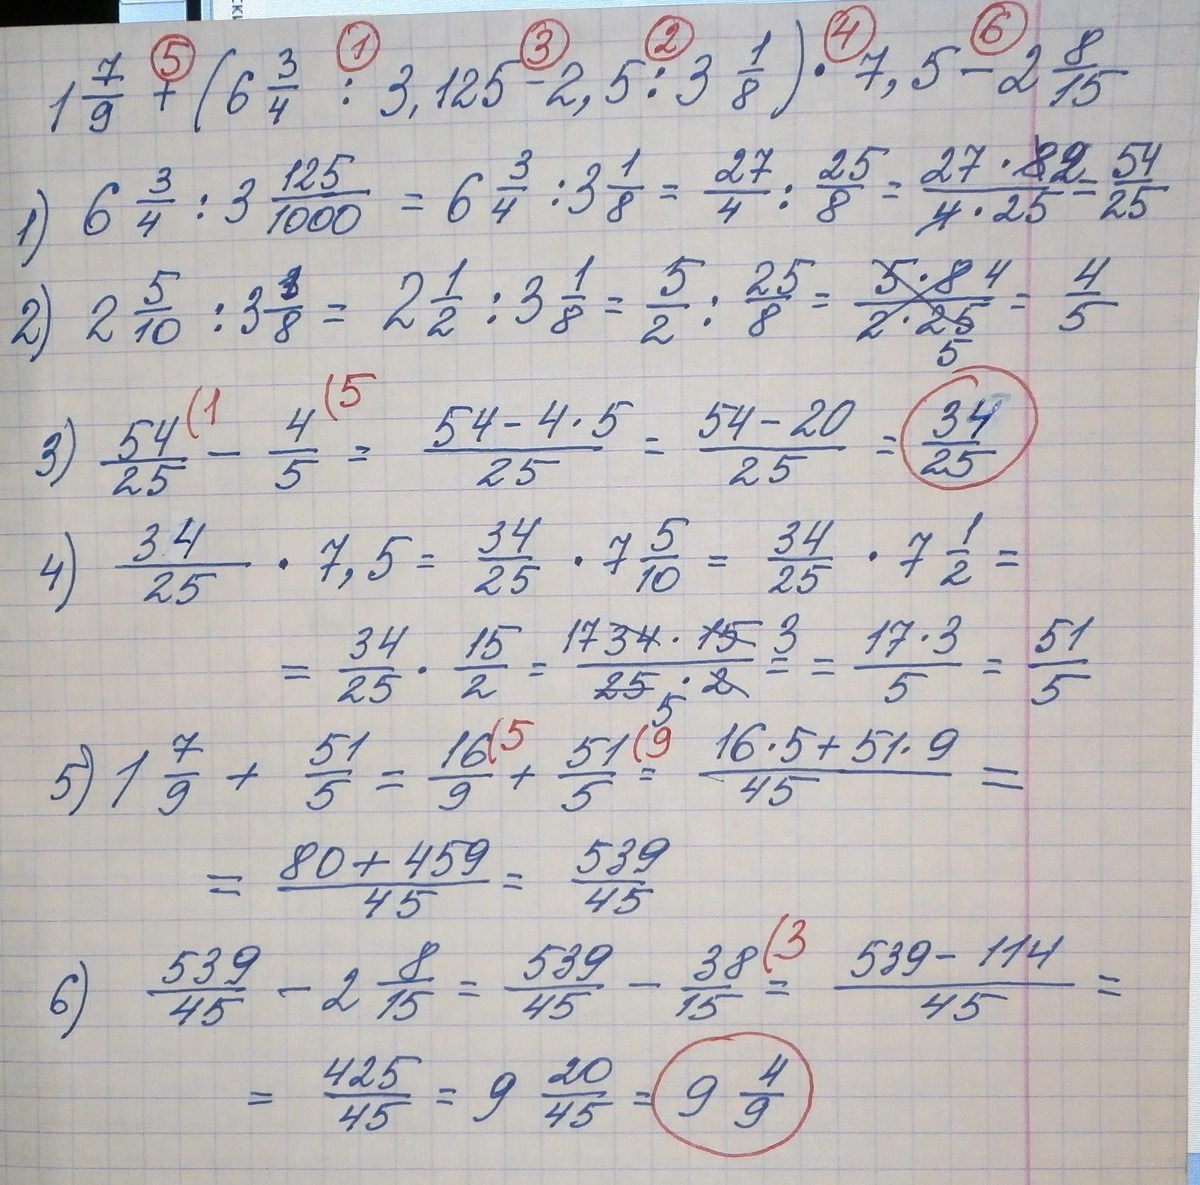 ⑤ ① ③ ② ④ ⑥
1 7/9 + (6 3/4 : 3,125 - 2,5 : 3 1/8) · 7,5 - 2 8/15
1) 6 3/4 : 3 125/1000 = 6 3/4 : 3 1/8 = 27/4 : 25/8 = 27·8 2/4·25 = 54/25
2) 2 5/10 : 3 1/8 = 2 1/2 : 3 1/8 = 5/2 : 25/8 = 5·8 4/2·25 5 = 4/5
3) 54/25 (1 - 4/5 (5 = 54-4·5/25 = 54-20/25 = 34/25
4) 34/25 · 7,5 = 34/25 · 7 5/10 = 34/25 · 7 1/2 =
= 34/25 · 15/2 = 17 34·15 3/25 5·2 = = 17·3/5 = 51/5
5) 1 7/9 + 51/5 = 16/9 (5 + 51/5 (9 = 16·5+51·9/45 =
= 80+459/45 = 539/45
6) 539/45 - 2 8/15 = 539/45 - 38/15 (3 = 539-114/45 =
= 425/45 = 9 20/45 = 9 4/9